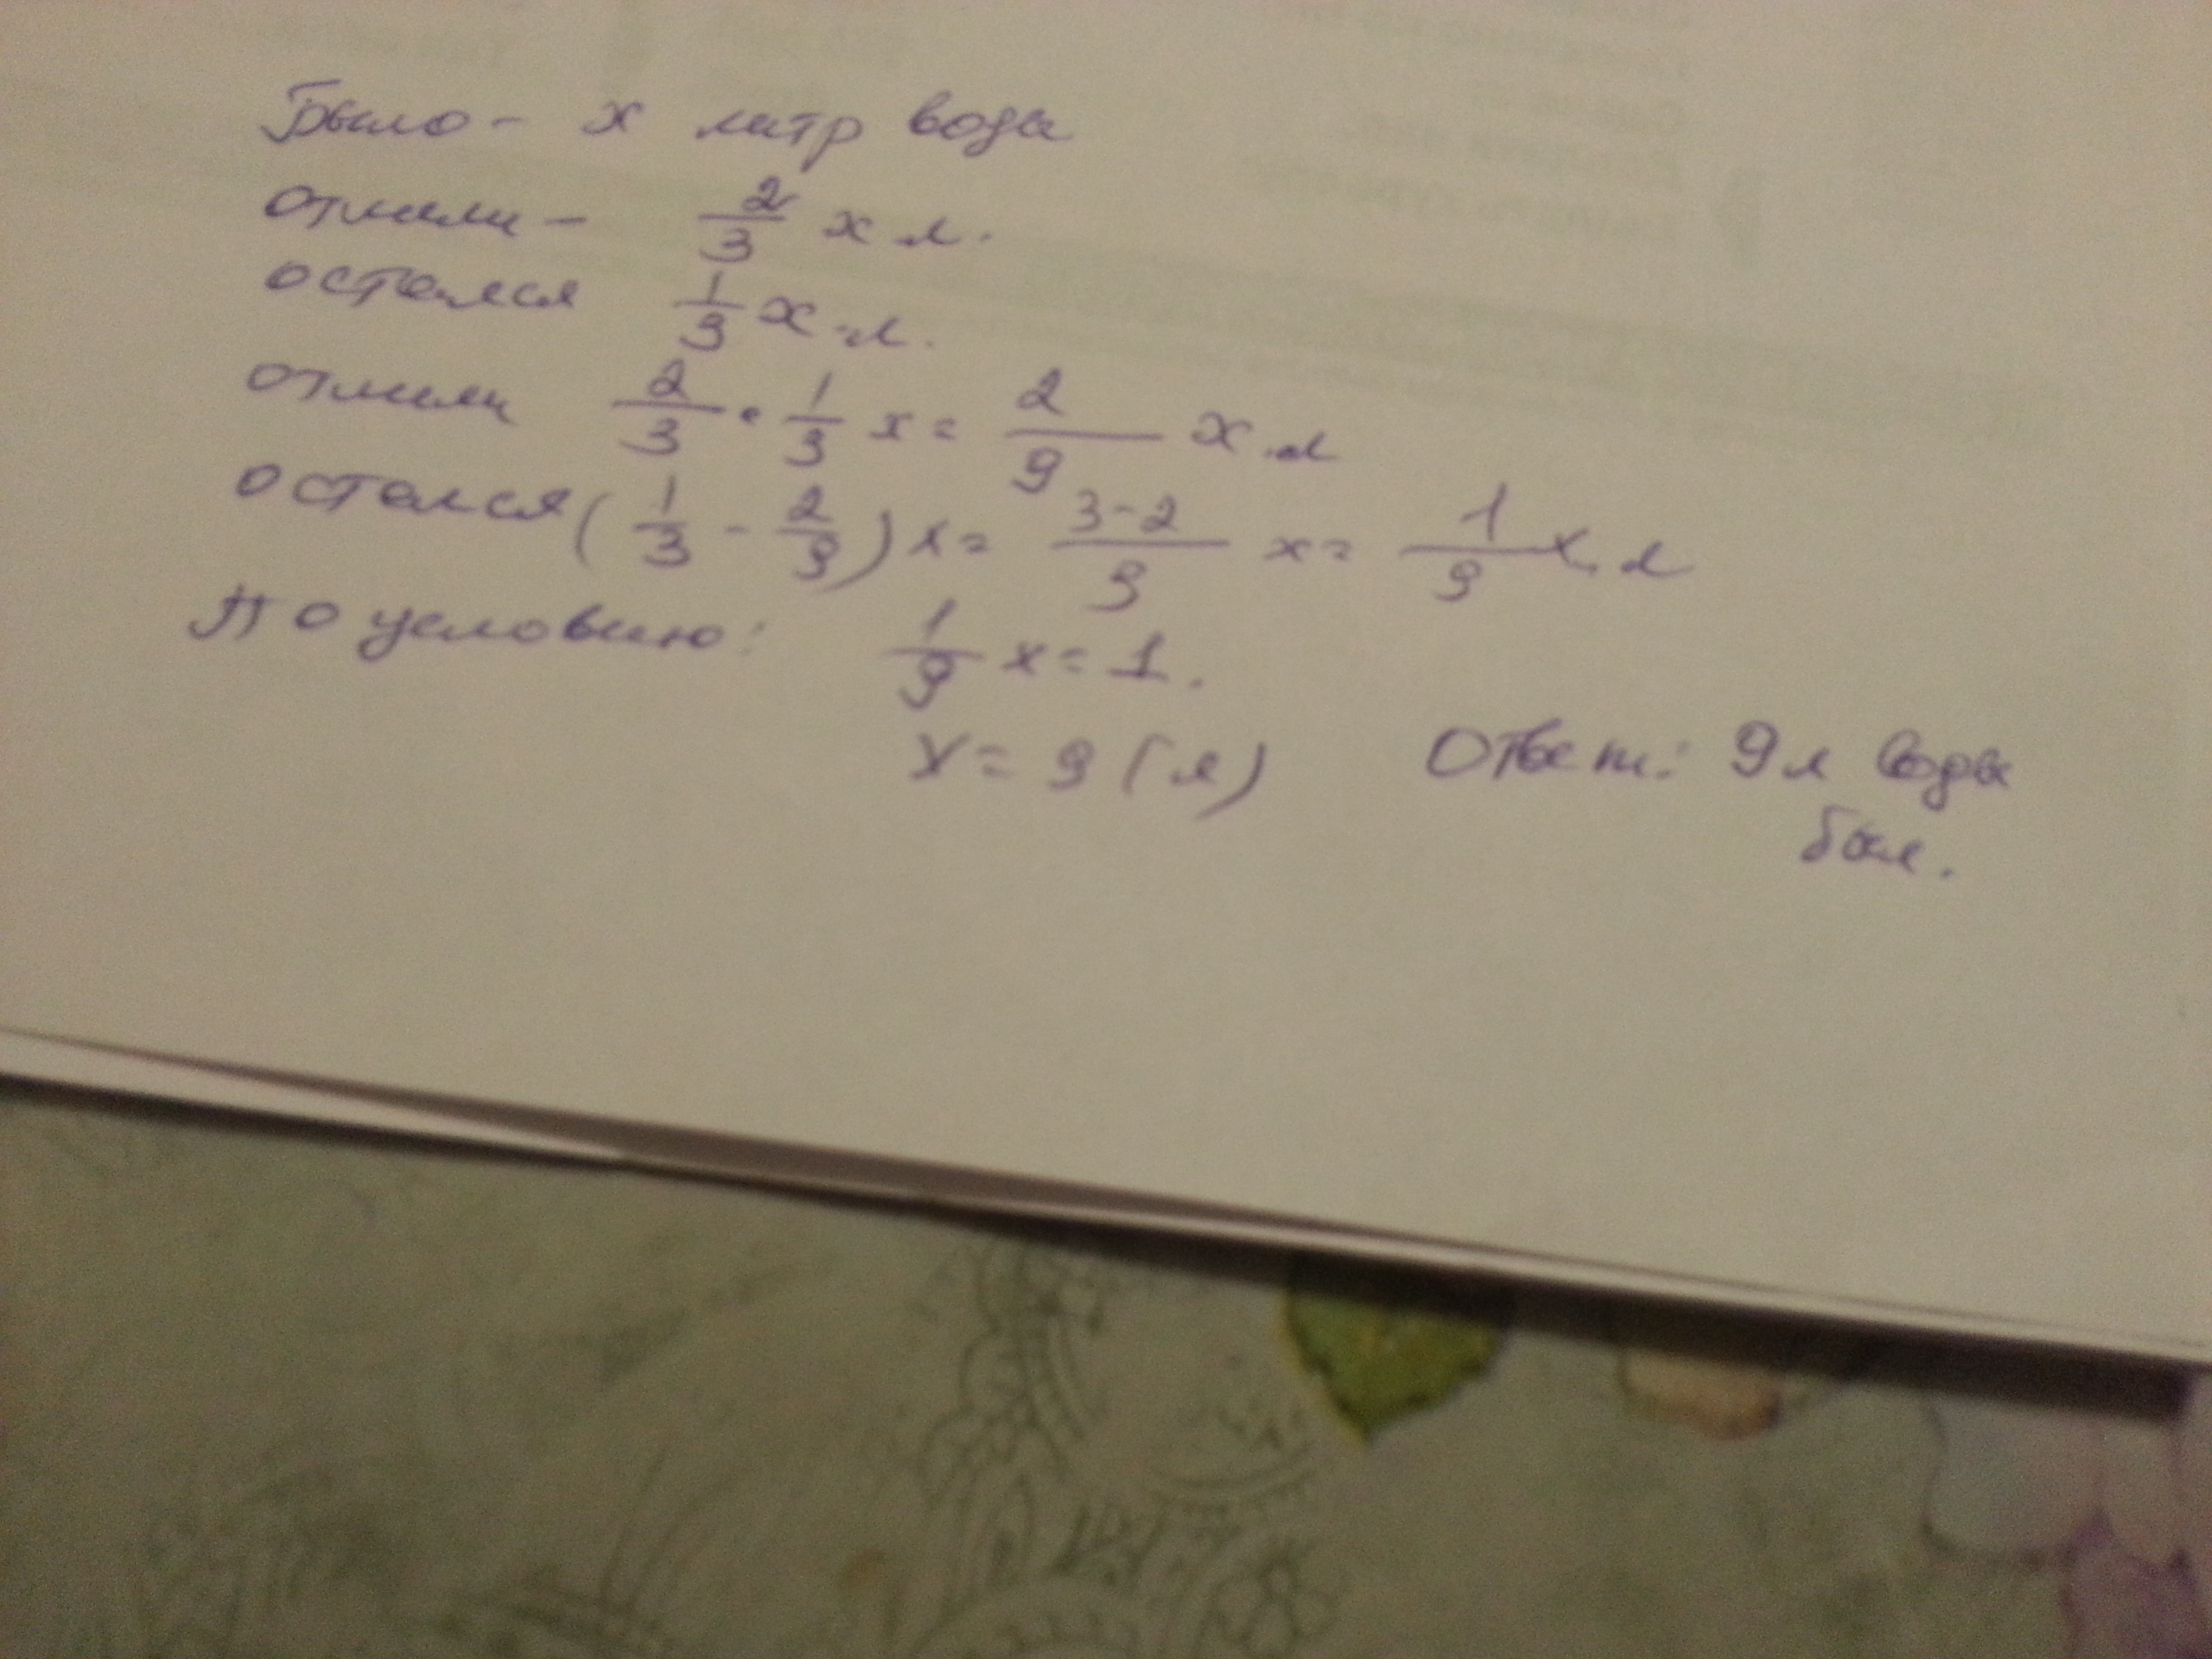 Было - х литр воды
отлили - 2/3 х л.
остался 1/3 х л.
отлили 2/3 · 1/3 х = 2/9 х л
остался (1/3 - 2/9) х = 3-2/9 х = 1/9 х л
По условию: 1/9 х = 1.
х = 9 (л) Ответ: 9 л воды
был.